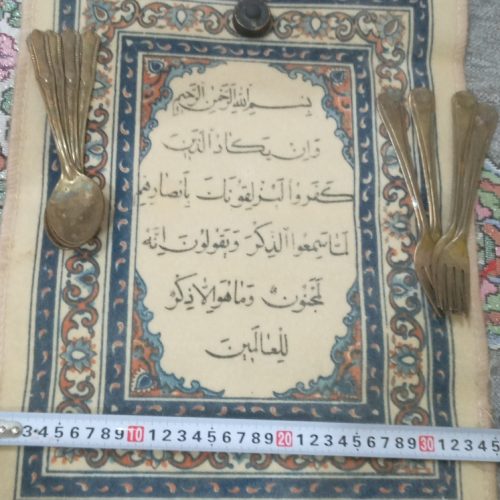 بسم الله الرحمن الرحيم
وَإن يَكادُ الّذينَ
كَفَروُا لَيزلِقونَكَ بِأبصارِهِم
لَمّا سَمِعوُا الذِكرَ وَيَقولونَ اِنّهُ
لَمجَنونٌ وَما هُوَ اِلّا ذِكرٌ
لِلعالَمينَ
3 4 5 6 7 8 9 10 1 2 3 4 5 6 7 8 9 20 1 2 3 4 5 6 7 8 9 30 1 2 3 4 5